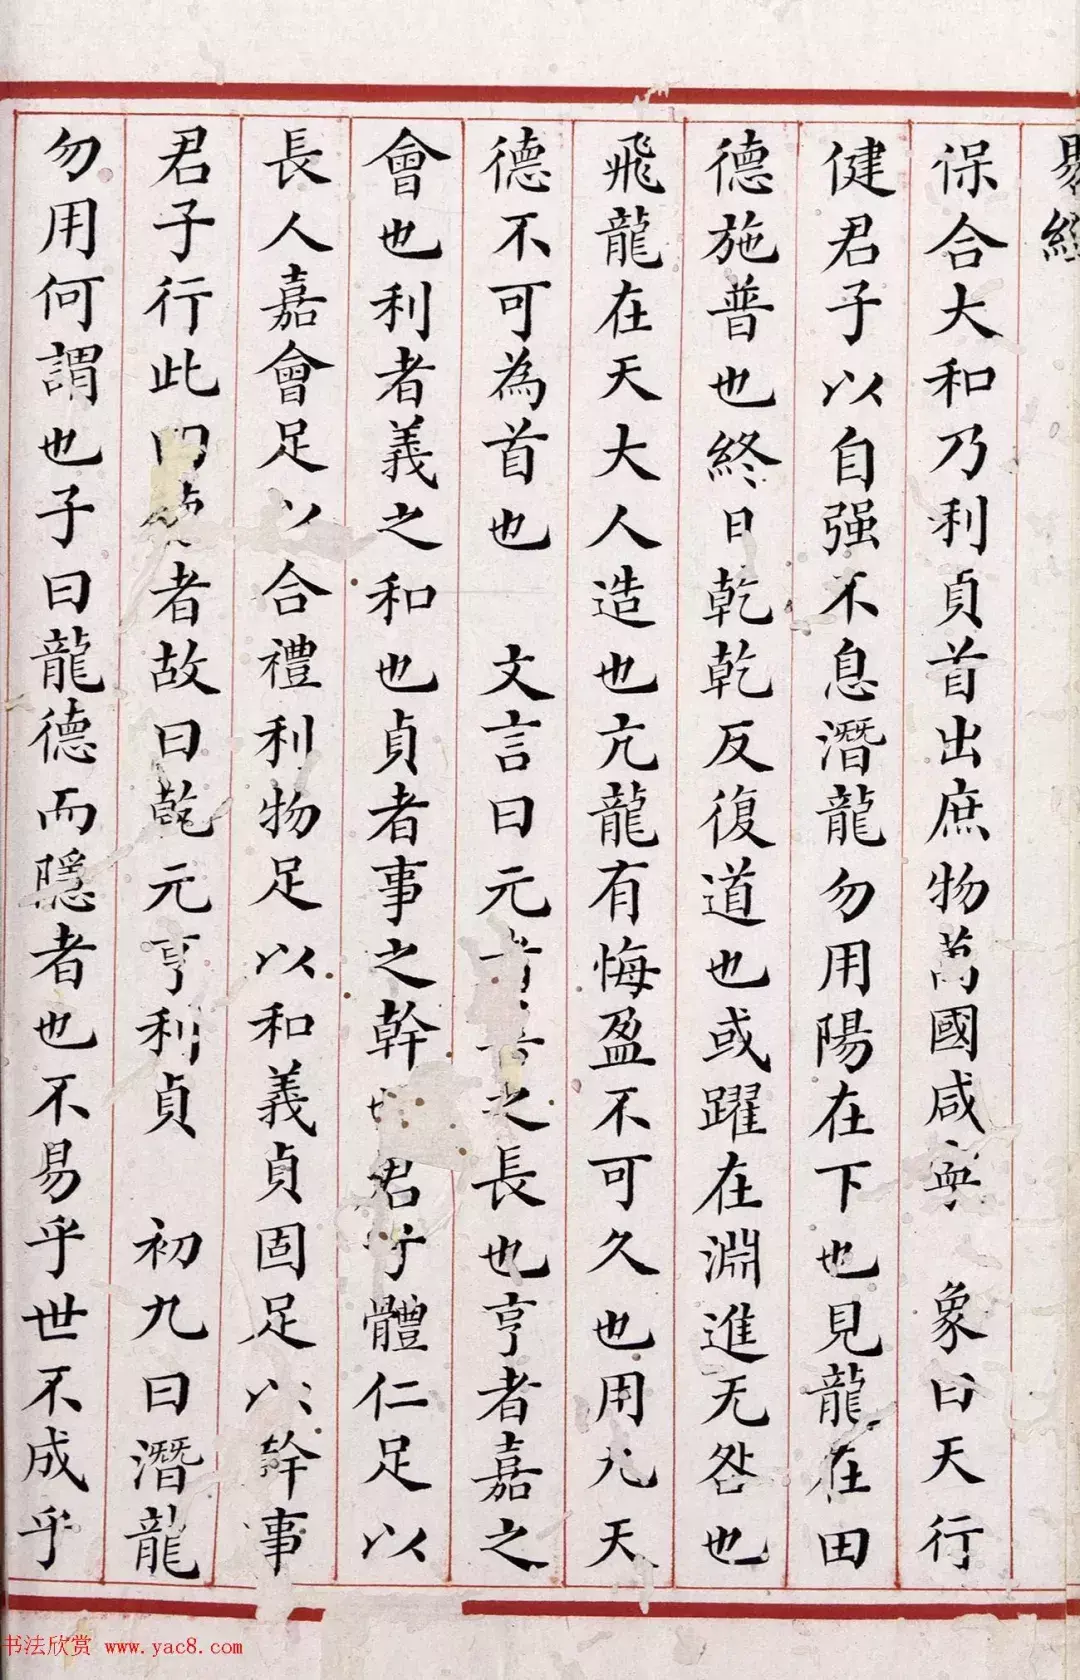 易經
保合大和乃利貞首出庶物萬國咸寧 象曰天行
健君子以自强不息潛龍勿用陽在下也見龍在田
德施普也終日乾乾反復道也或躍在淵進无咎也
飛龍在天大人造也亢龍有悔盈不可久也用九天
德不可為首也 文言曰元者善之長也亨者嘉之
會也利者義之和也貞者事之幹也君子體仁足以
長人嘉會足以合禮利物足以和義貞固足以幹事
君子行此四德者故曰乾元亨利貞 初九曰潛龍
勿用何謂也子曰龍德而隱者也不易乎世不成乎
书法欣赏 www.yac8.com